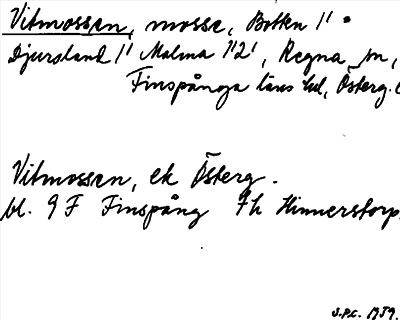 Vitmossen, mosse, Botten 1/1
Djursland 1/1 Malma 1/2 1, Regna sn,
Finspånga läns hd, Österg.
Vitmossen, ek Österg.
bl. 9 F Finspång 7h Hinnerstorp
S.P.C. 1959.